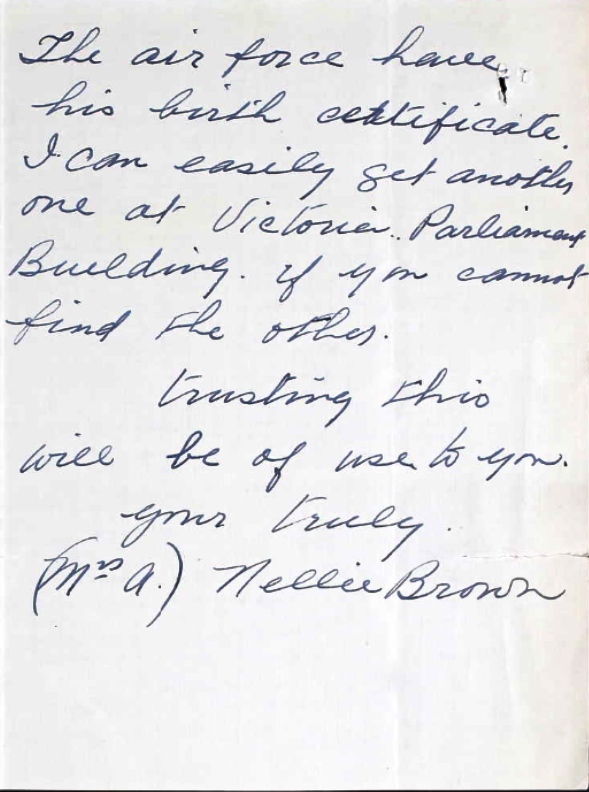 The air force have
his birth certificate.
I can easily get another
one at Victoria. Parliament
Building. if you cannot
find the other.
trusting this
will be of use to you.
your truly.
(Mrs A.) Nellie Brown